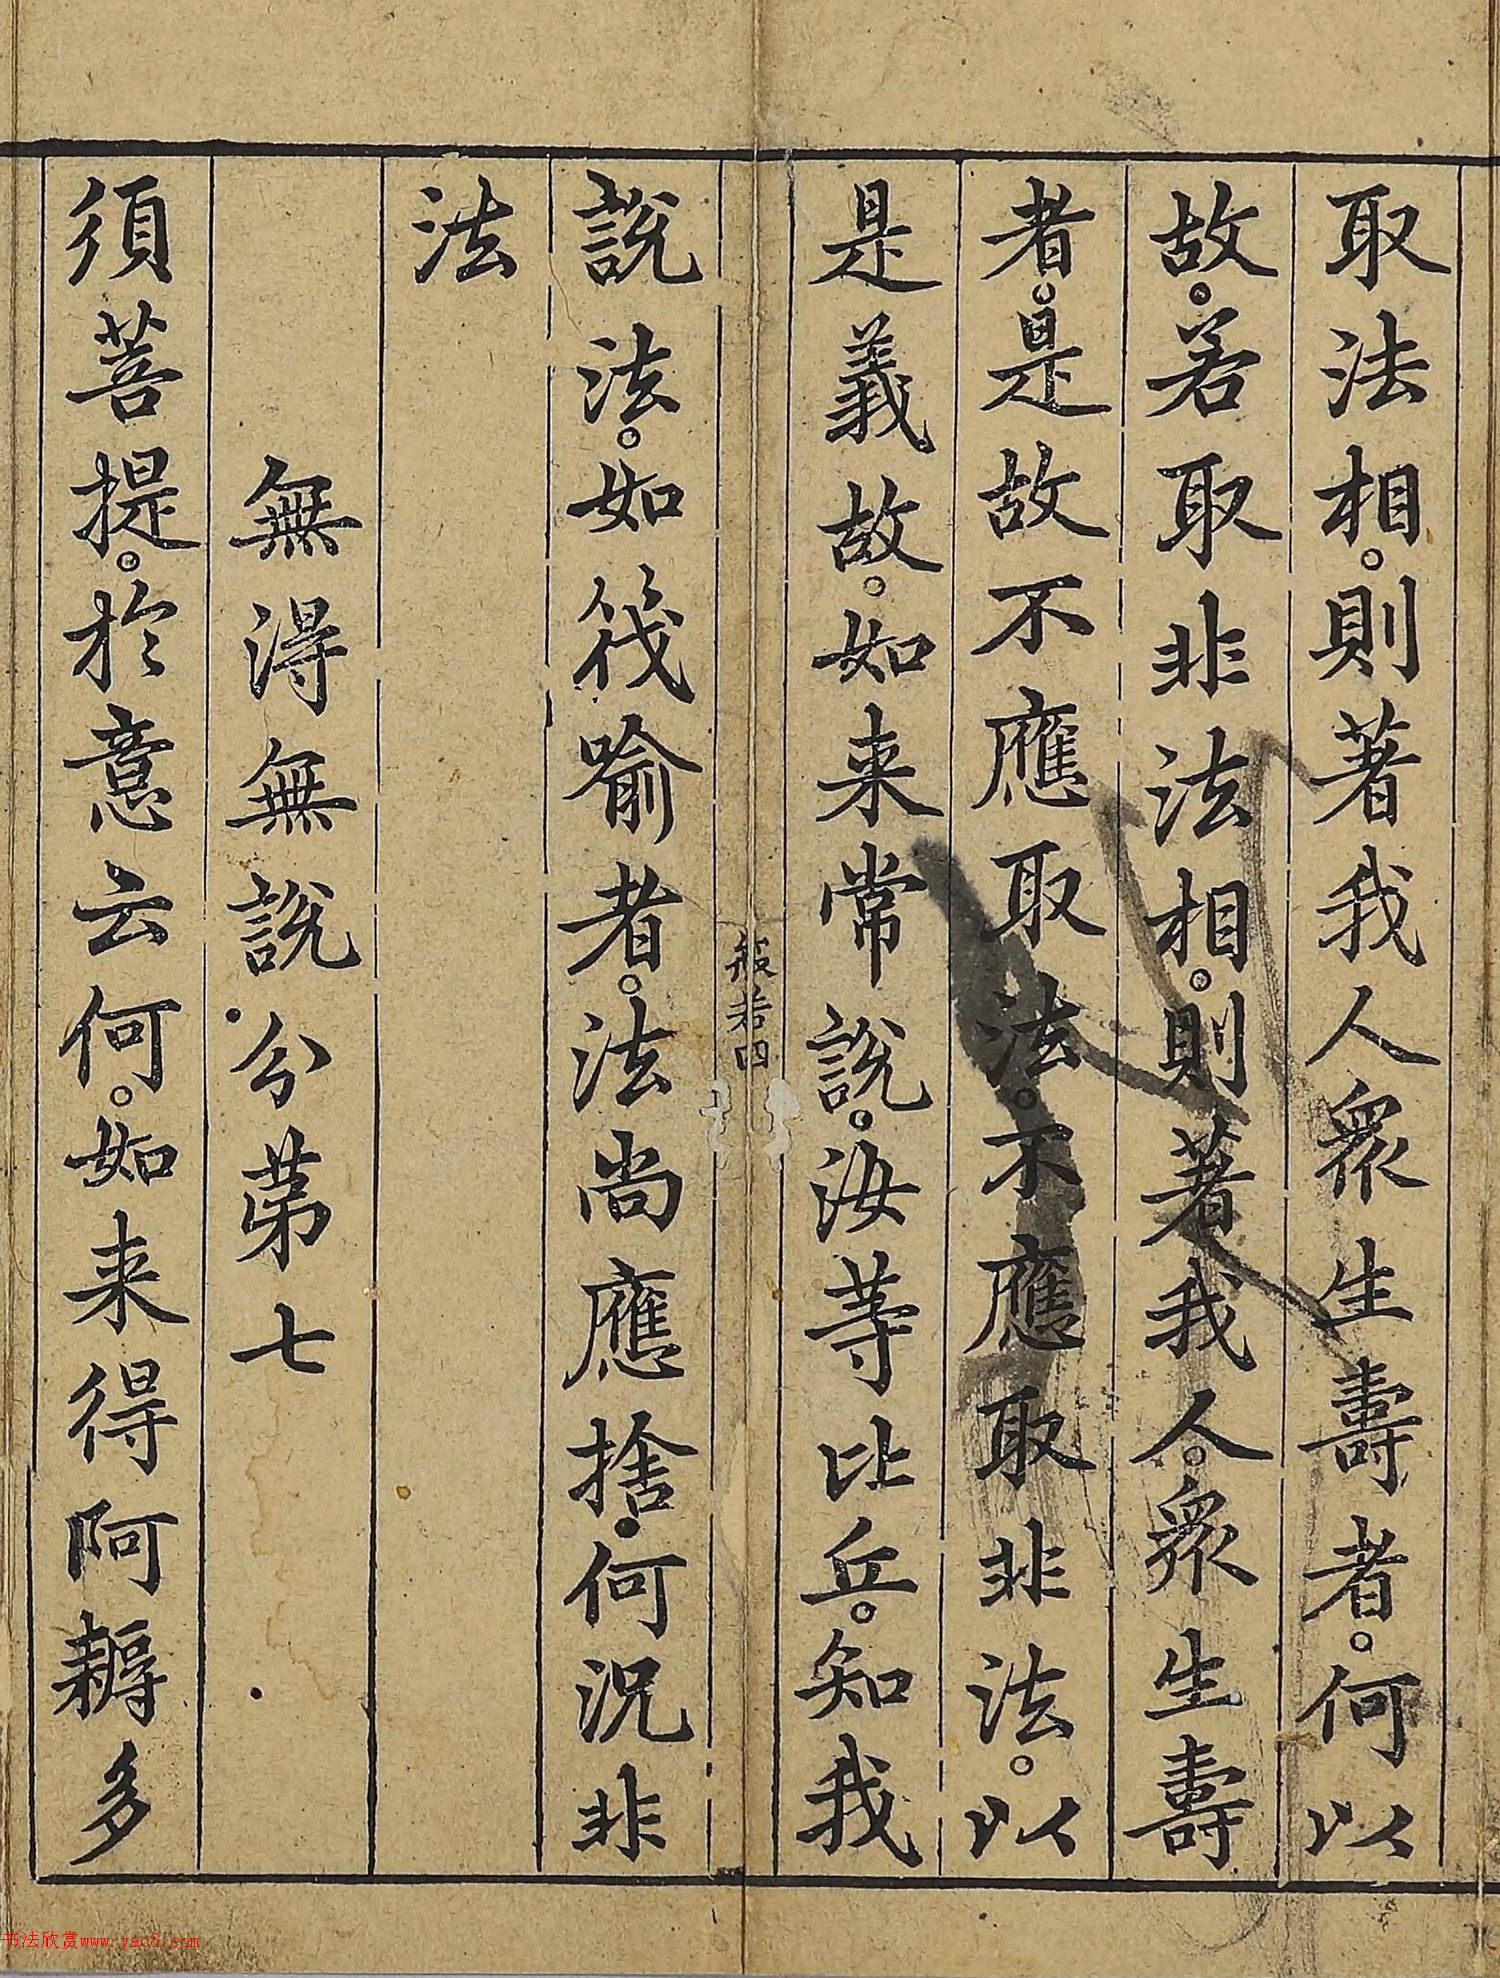 取法相。則著我人眾生壽者。何以
故。若取非法相。則著我人。眾生壽
者。是故不應取法。不應取非法。以
是義故。如来常說。汝等比丘。知我
般若四
說法。如筏喻者。法尚應捨。何況非
法
無得無說分苐七
須菩提。於意云何。如来得阿耨多
书法欣赏www.yac8.com